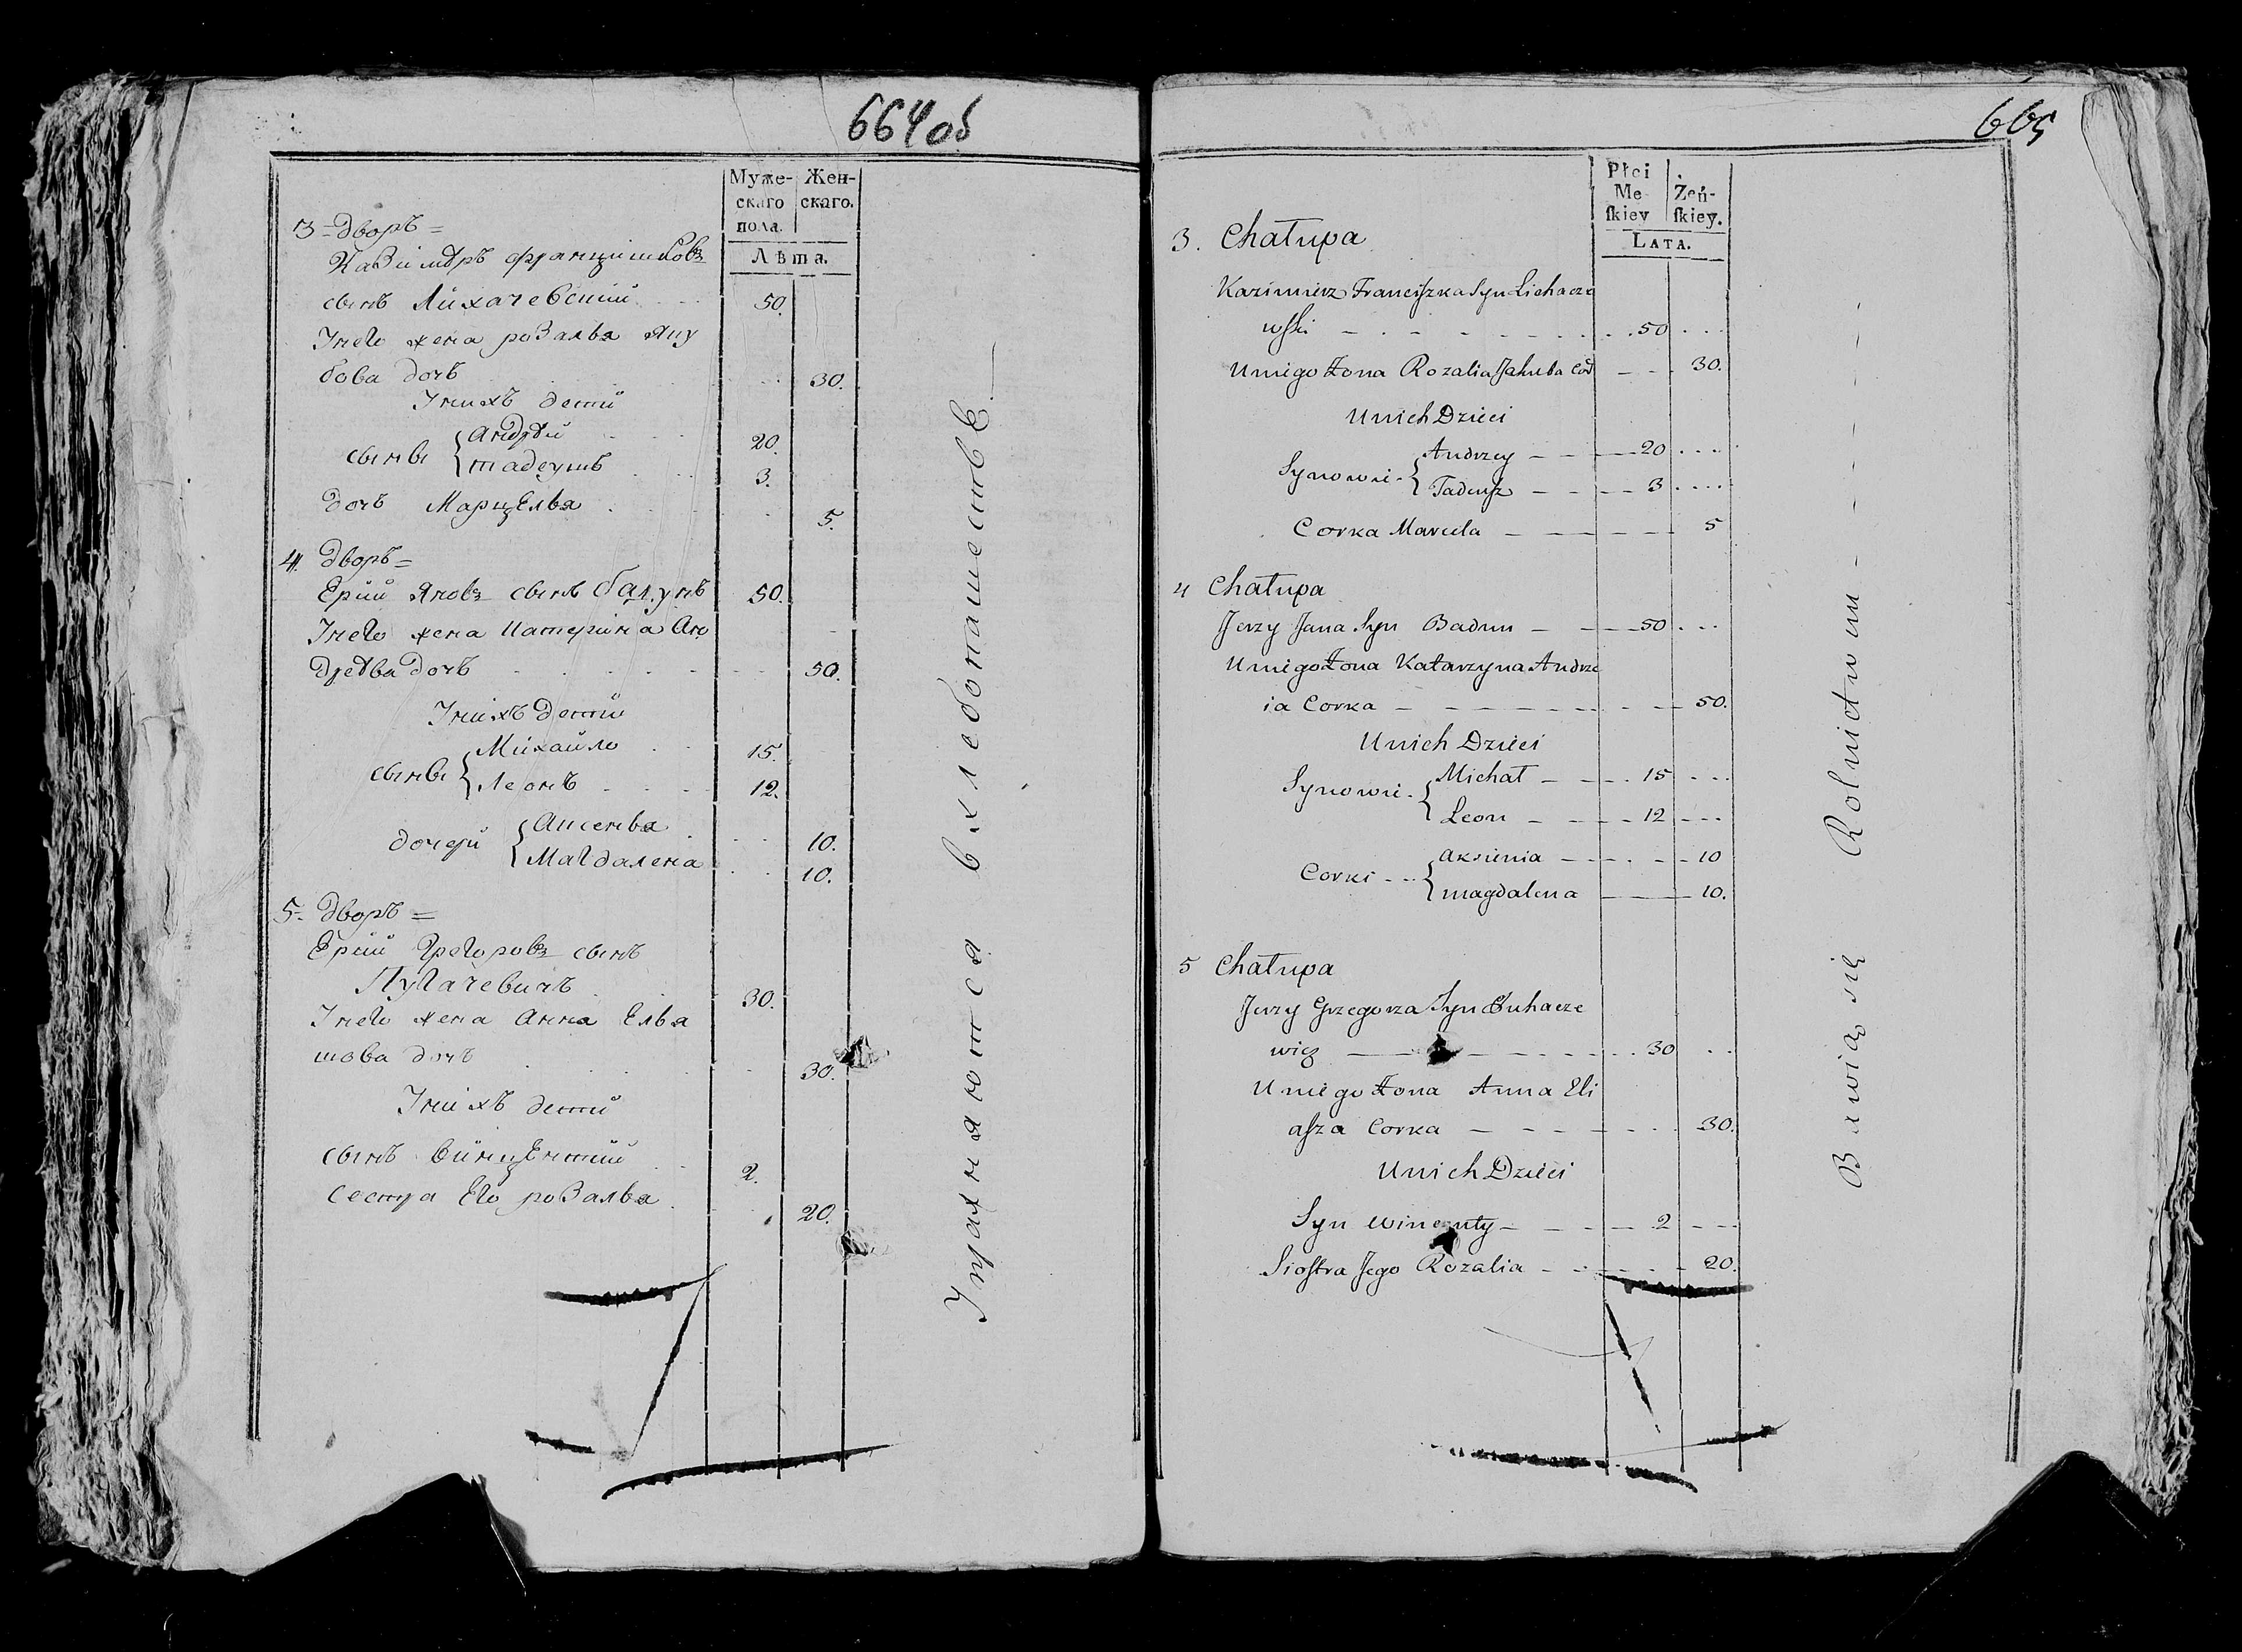 664об
Муже-
скаго
пола.
Жен-
скаго.
Лѣта.
3 - дворъ =
Казимѣръ Францишковъ
сынъ Лихачевский 50.
У него жена розалья Яку
бова дочь 30.
У нихъ дети
сыны { Андрѣй 20.
тадеушъ 3.
дочь МарцЕлья 5.
4. дворъ =
Ерий Яновъ сынъ 50.
У него жена Катерина Ан
дрѣева дочь 50.
У нихъ дети
сыны { Михайло 15.
Леонъ 12.
дочери { Аксенья 10.
Магдалена 10.
5 - дворъ =
Ерий Грегоровъ сынъ
Пугачевичъ 30.
У него жена Анна Елья
шова дочь 30.
У нихъ дети
сынъ ВинцЕнтий 2.
Сестра Его розалья 20.
Упражняются в хлебопашестве
665
Płci
Me-
ſkiey
Żeń-
ſkiey.
LATA.
3. Chałupa
Kazimierz Franciſzka Syn Lichacze
wſki 50
U niego Żona Rozalia Jakuba Cor 30.
U nich Dzieci
Synowie { Andrzey 20
Tadeuſz 3
Corka Marcela 5
4 Chałupa
Jerzy Jana Syn Badun 50
U niego Żona Katarzyna Andrze
ia Corka 50.
U nich Dzieci
Synowie { Michał 15
Leon 12
Corki { Aksienia 10
magdalena 10.
5 Chałupa
Jerzy Grzegorza Syn
wicz 30
U niego Żona Anna Eli
aſza Corka 30.
U nich Dzieci
Syn Wincenty 2
Sioſtra Jego Rozalia 20.
Bawią się Rolnictwem